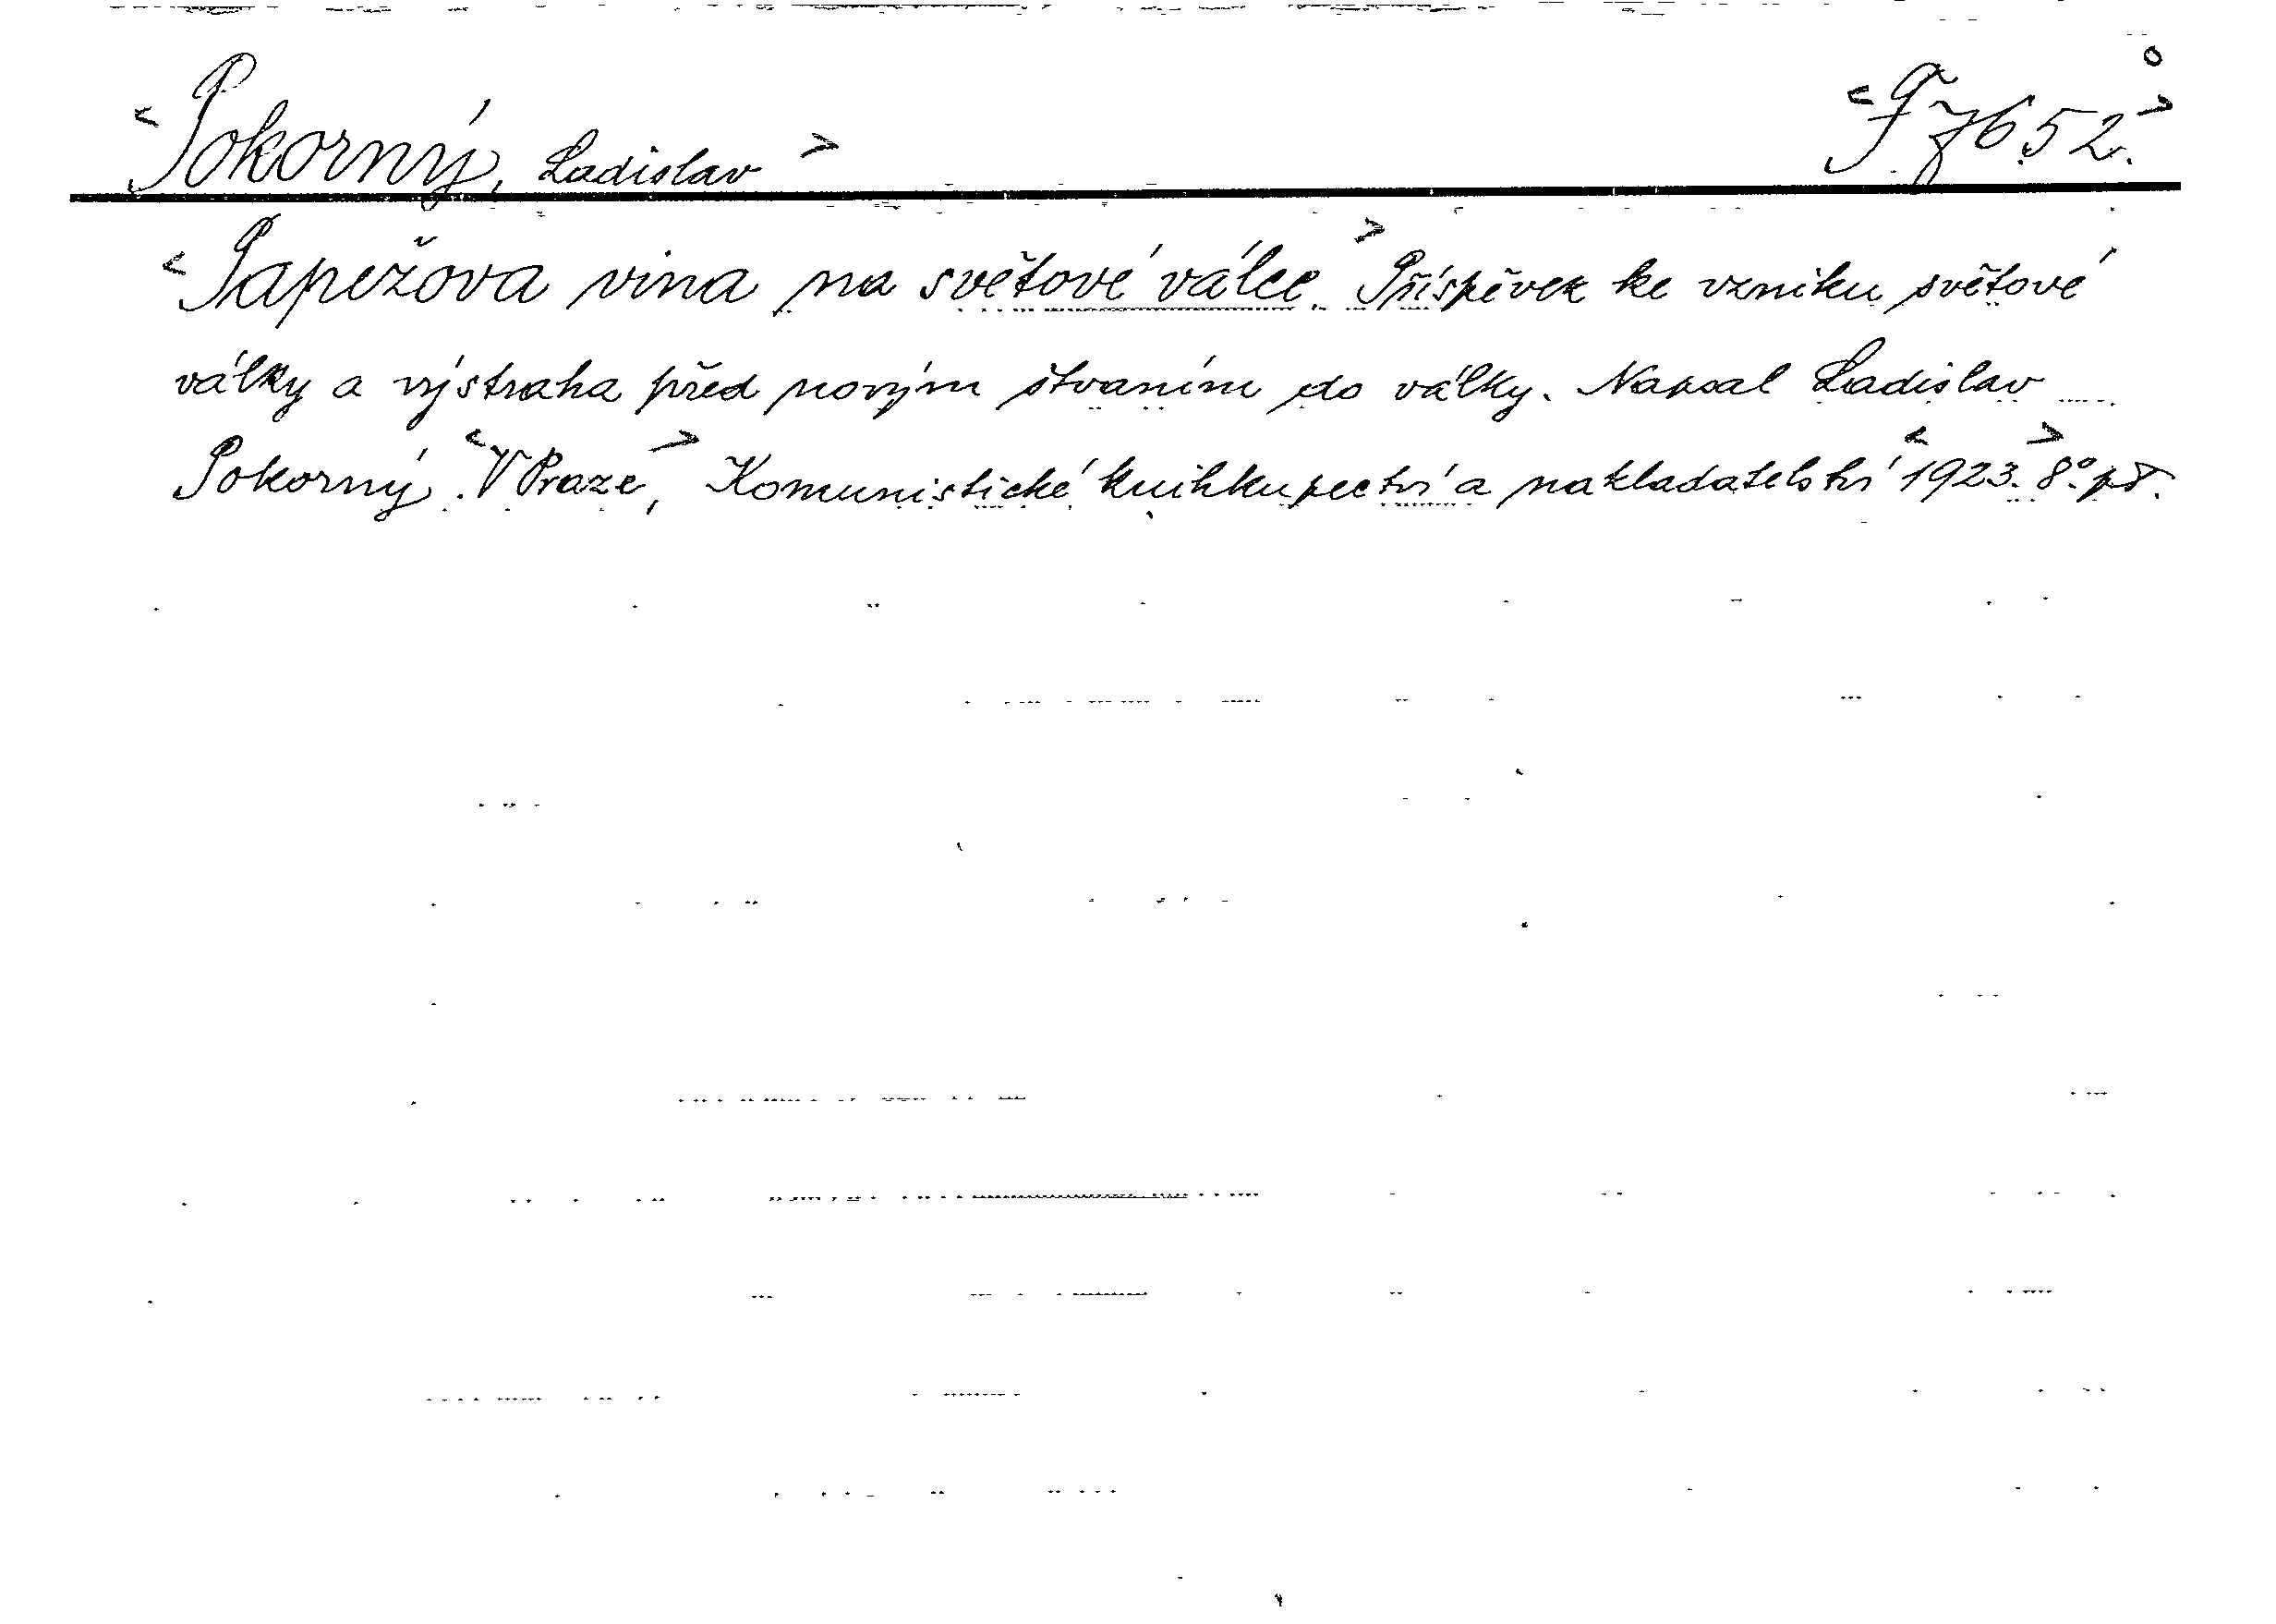 <Pokorný, Ladislav> <F 7652.>°
<Papežova vina na světové válce.> Příspěvek ke vzniku světové
války a výstraha před novým štvaním do války. Napsal Ladislav
Pokorný. <V Praze>, Komunistické knihkupectví a nakladatelství <1923.> 8°.